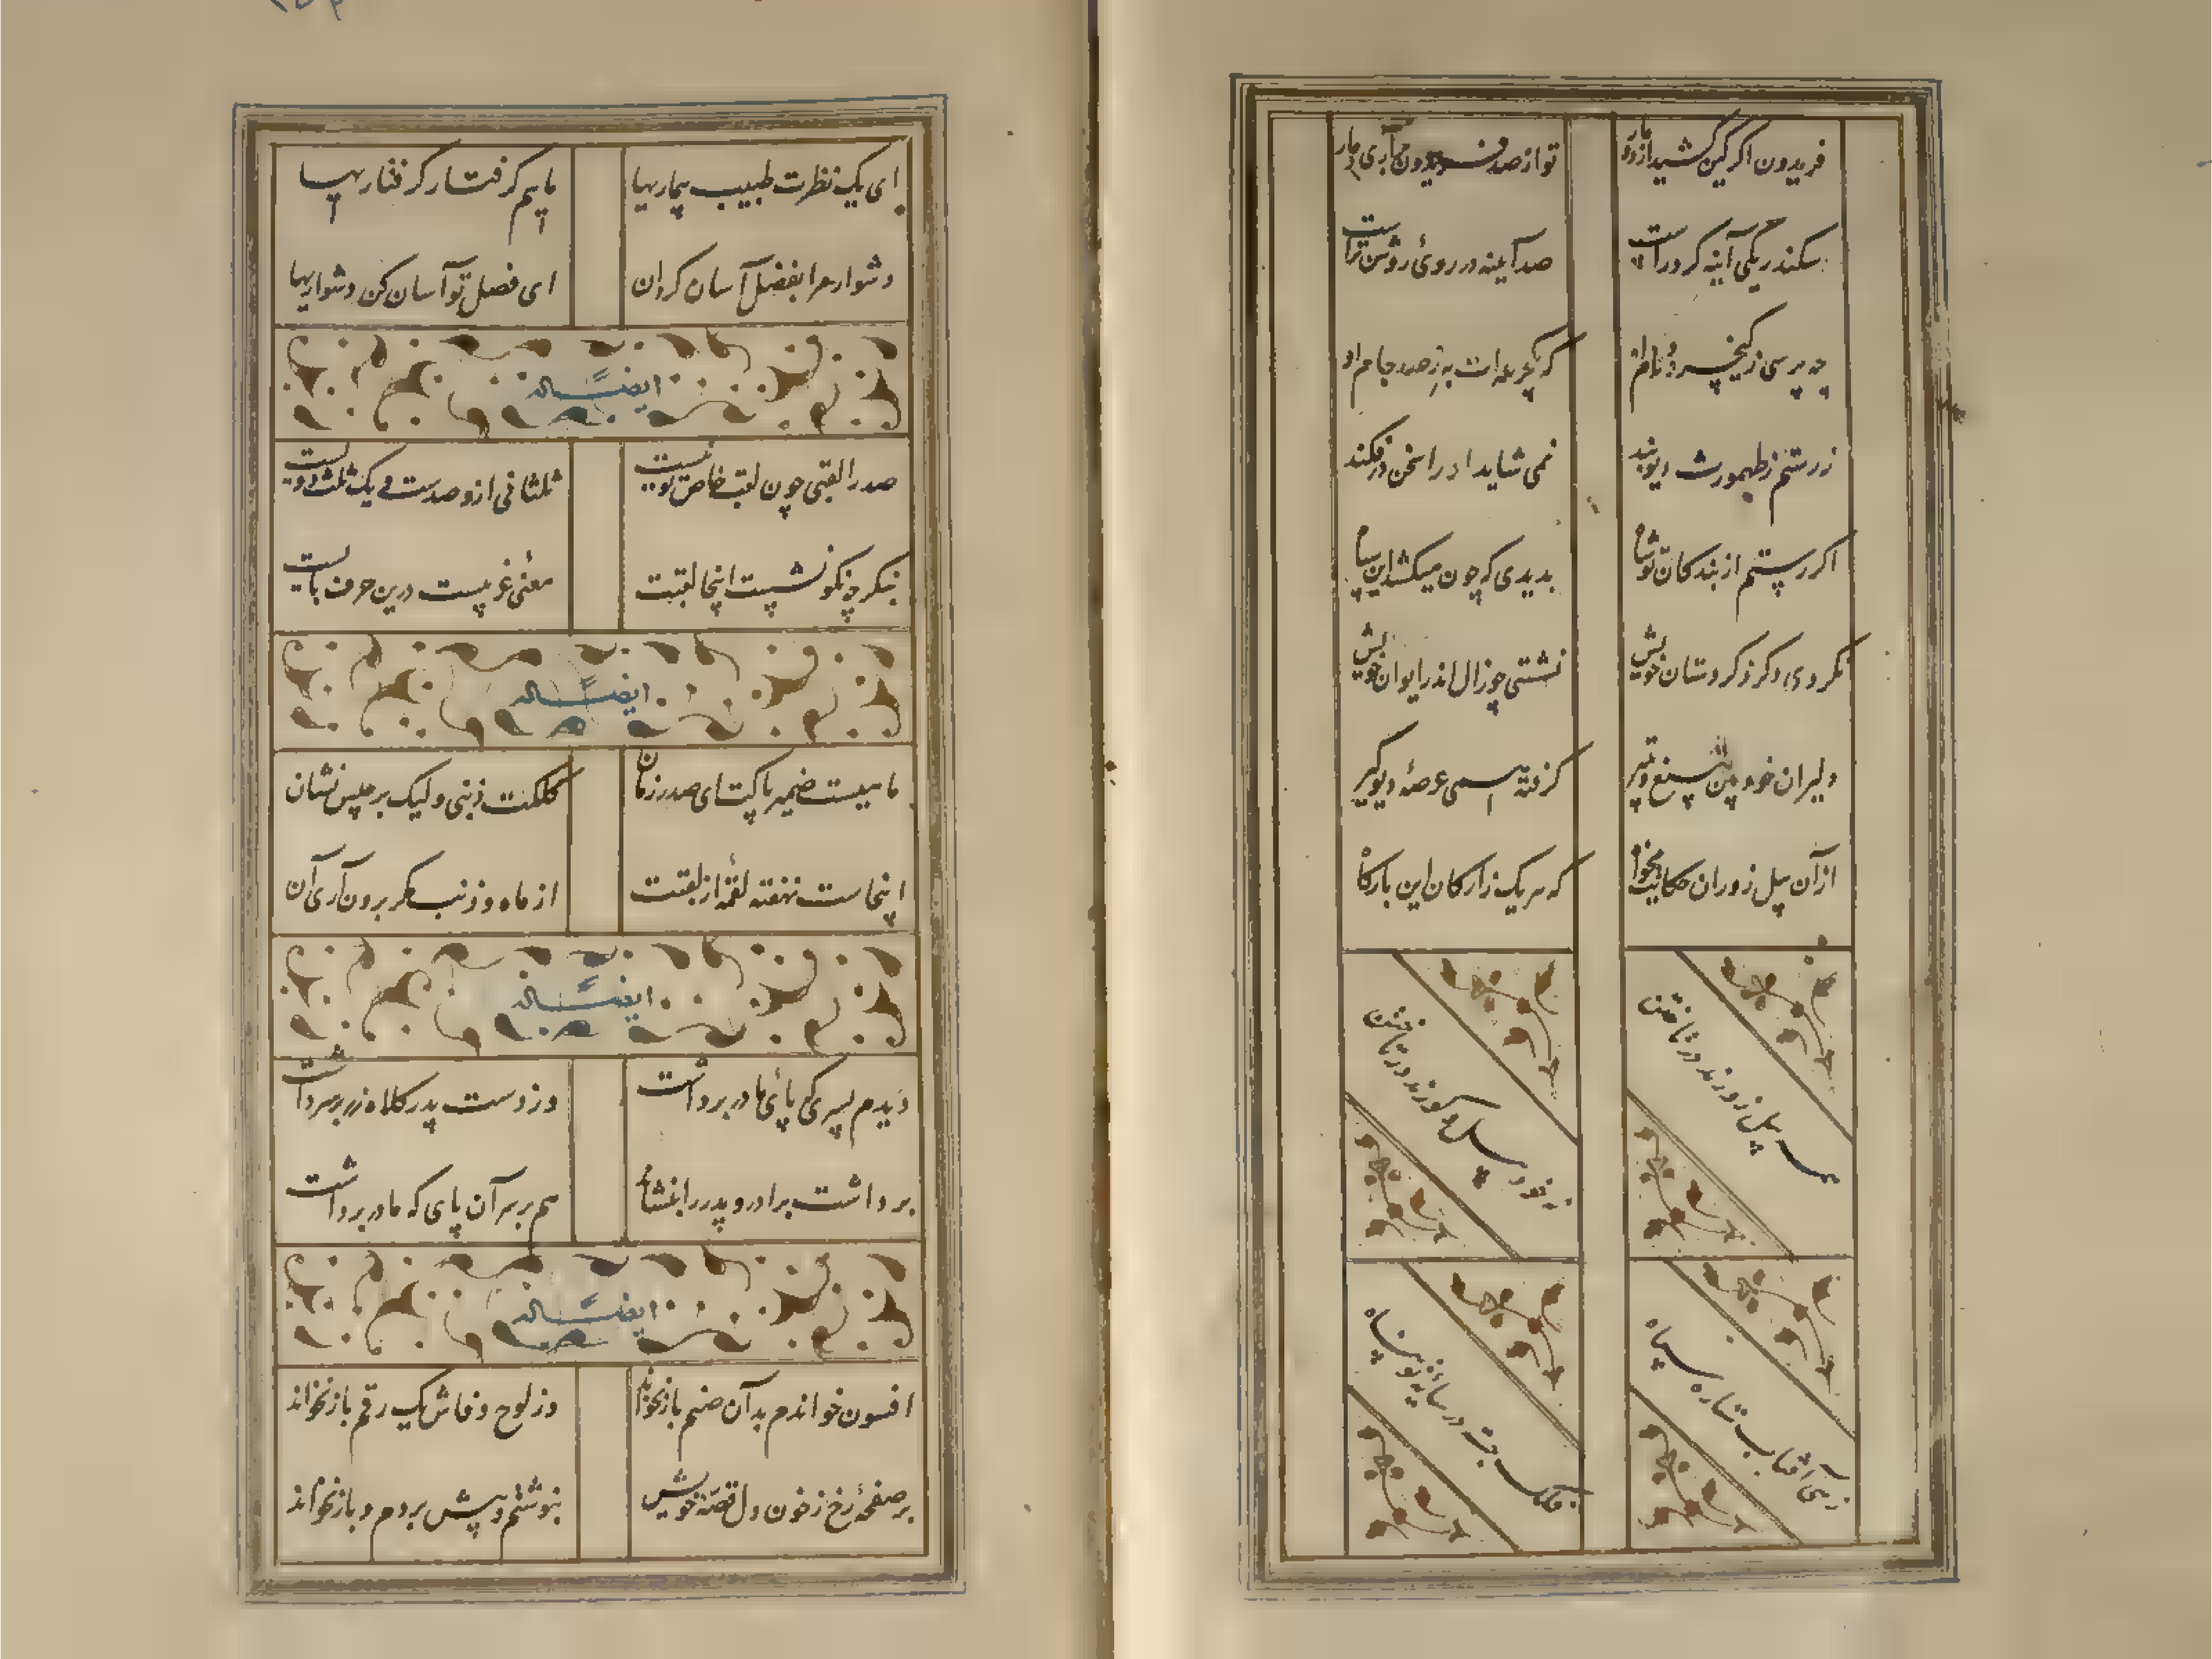 فریدون اگر کین کشید از دو مار
تو از صد فریدون برآری دمار
سکندر یکی آینه کرد راست
صد آیینه در روی روشن تراست
چه پرسی ز کیخسرو و نام او
که یکجرعه‌ات به ز صد جام او
ز رستم ز طهمورث دیوبند
نمی شاید ادرا سخن در فکند
اگر رستم از بندگان تو شاه
بدیدی که چون میکشد این سپاه
نکردی دگر ذکر دستان خویش
نشستی چو زال اندر ایوان خویش
دلیران خود بین به تیغ و تیر
گرفته همی عرصهٔ دیوگیر
از آن پیل زوران حکایت بخواه
که هر یک ز ارکان این بارگاه
همه پیل زورند در تاختن
نه خود پیل و کورند در تاختن
زهی آفتاب ستاره سپاه
فلک جسته در سایهٔ تو پناه
ای یک نظرت طبیب بیماریها
مایم گرفتار گرفتاریها
دشوار مرا بفضل آسان گردان
ای فضل تو آسان کن دشواریها
ایضاً له
صدرا لقبی چون لقب خاص تو نیست
ثلثانی ازو صدست و یک ثلث دویست
بنگر چه نکو نشست اینجا لقبت
معنی غریبست درین حرف بایست
ایضاً له
ماهیست ضمیر پاکت ای صدر زمان
کلکت ذنبی ولیک برجیس نشان
اینجاست نهفته لقمهٔ از لقبت
از ماه و ذنب مگر برون آری آن
ایضاً له
دیدم پسری که پای مادر برداشت
وز دست پدر کلاه زر بر سر داشت
برداشت برادر و پدر را بنشاند
هم بر سر آن پای که مادر برداشت
ایضاً له
افسون خواندم بد آن صنم باز نخواند
وز لوح وفاش یک رقم باز نخواند
بر صفحهٔ رخ ز خون دل قصهٔ خویش
بنوشتم و پیش بردم و باز نخواند